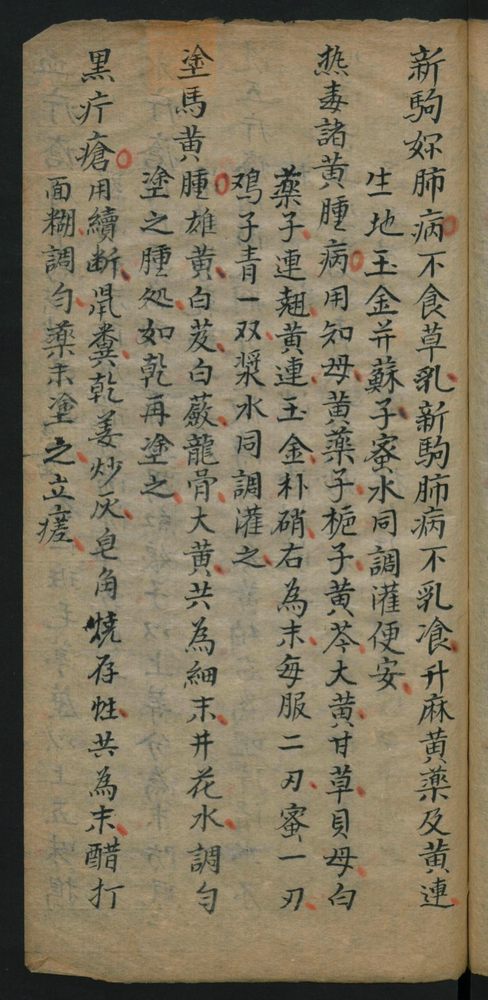 新駒姟肺病不食草乳新駒肺病不乳飡升麻黄藥及黄連
生地玉金并蘇子蜜水同調灌便安
热毒諸黄腫病用知母黄藥子栀子黄芩大黄甘草貝母白
藥子連翹黄連玉金朴硝右為末每服二刃蜜一刃
鸡子青一双漿水同調灌之
塗馬黄腫雄黄白芨白蘞龍骨大黄共為細末井花水調勻
塗之腫処如乾再塗之
黒疔瘡用續断鼠糞乾姜炒灰皂角燒存性共為末醋打
面糊調勻藥末塗之立瘥